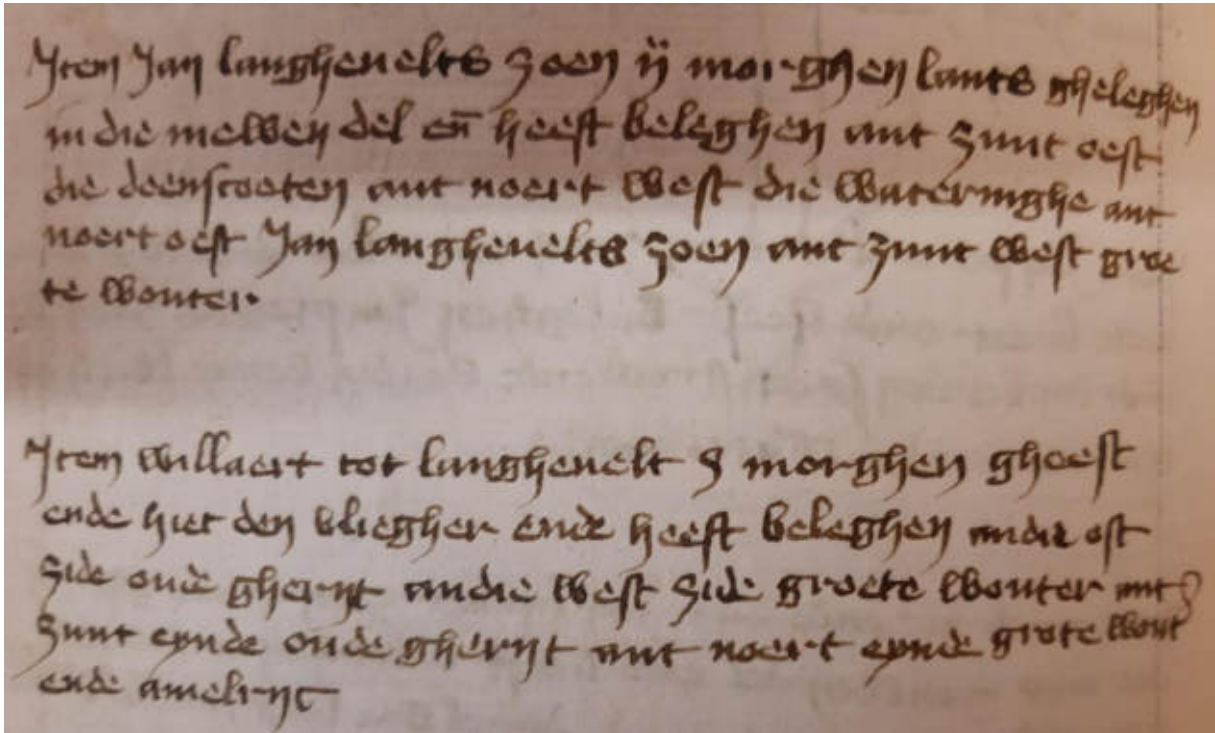 Item Jan langhevelts zoen ij morghen lants gheleghen
in die melwen del en̄ heeft beleghen ant zunt oest
die deenscoeten ant noert west die wateringhe ant
noert oest Jan langhevelts zoen ant zunt west groe
te wouter
Item willaert tot langhevelt morghen gheest
ende hiet den vliegher ende heeft beleghen andie ost
zide oude gherijt andie west zide groete wouter ant
zunt eynde oude gherijt ant noert eynde grote wout
ende amelrijc